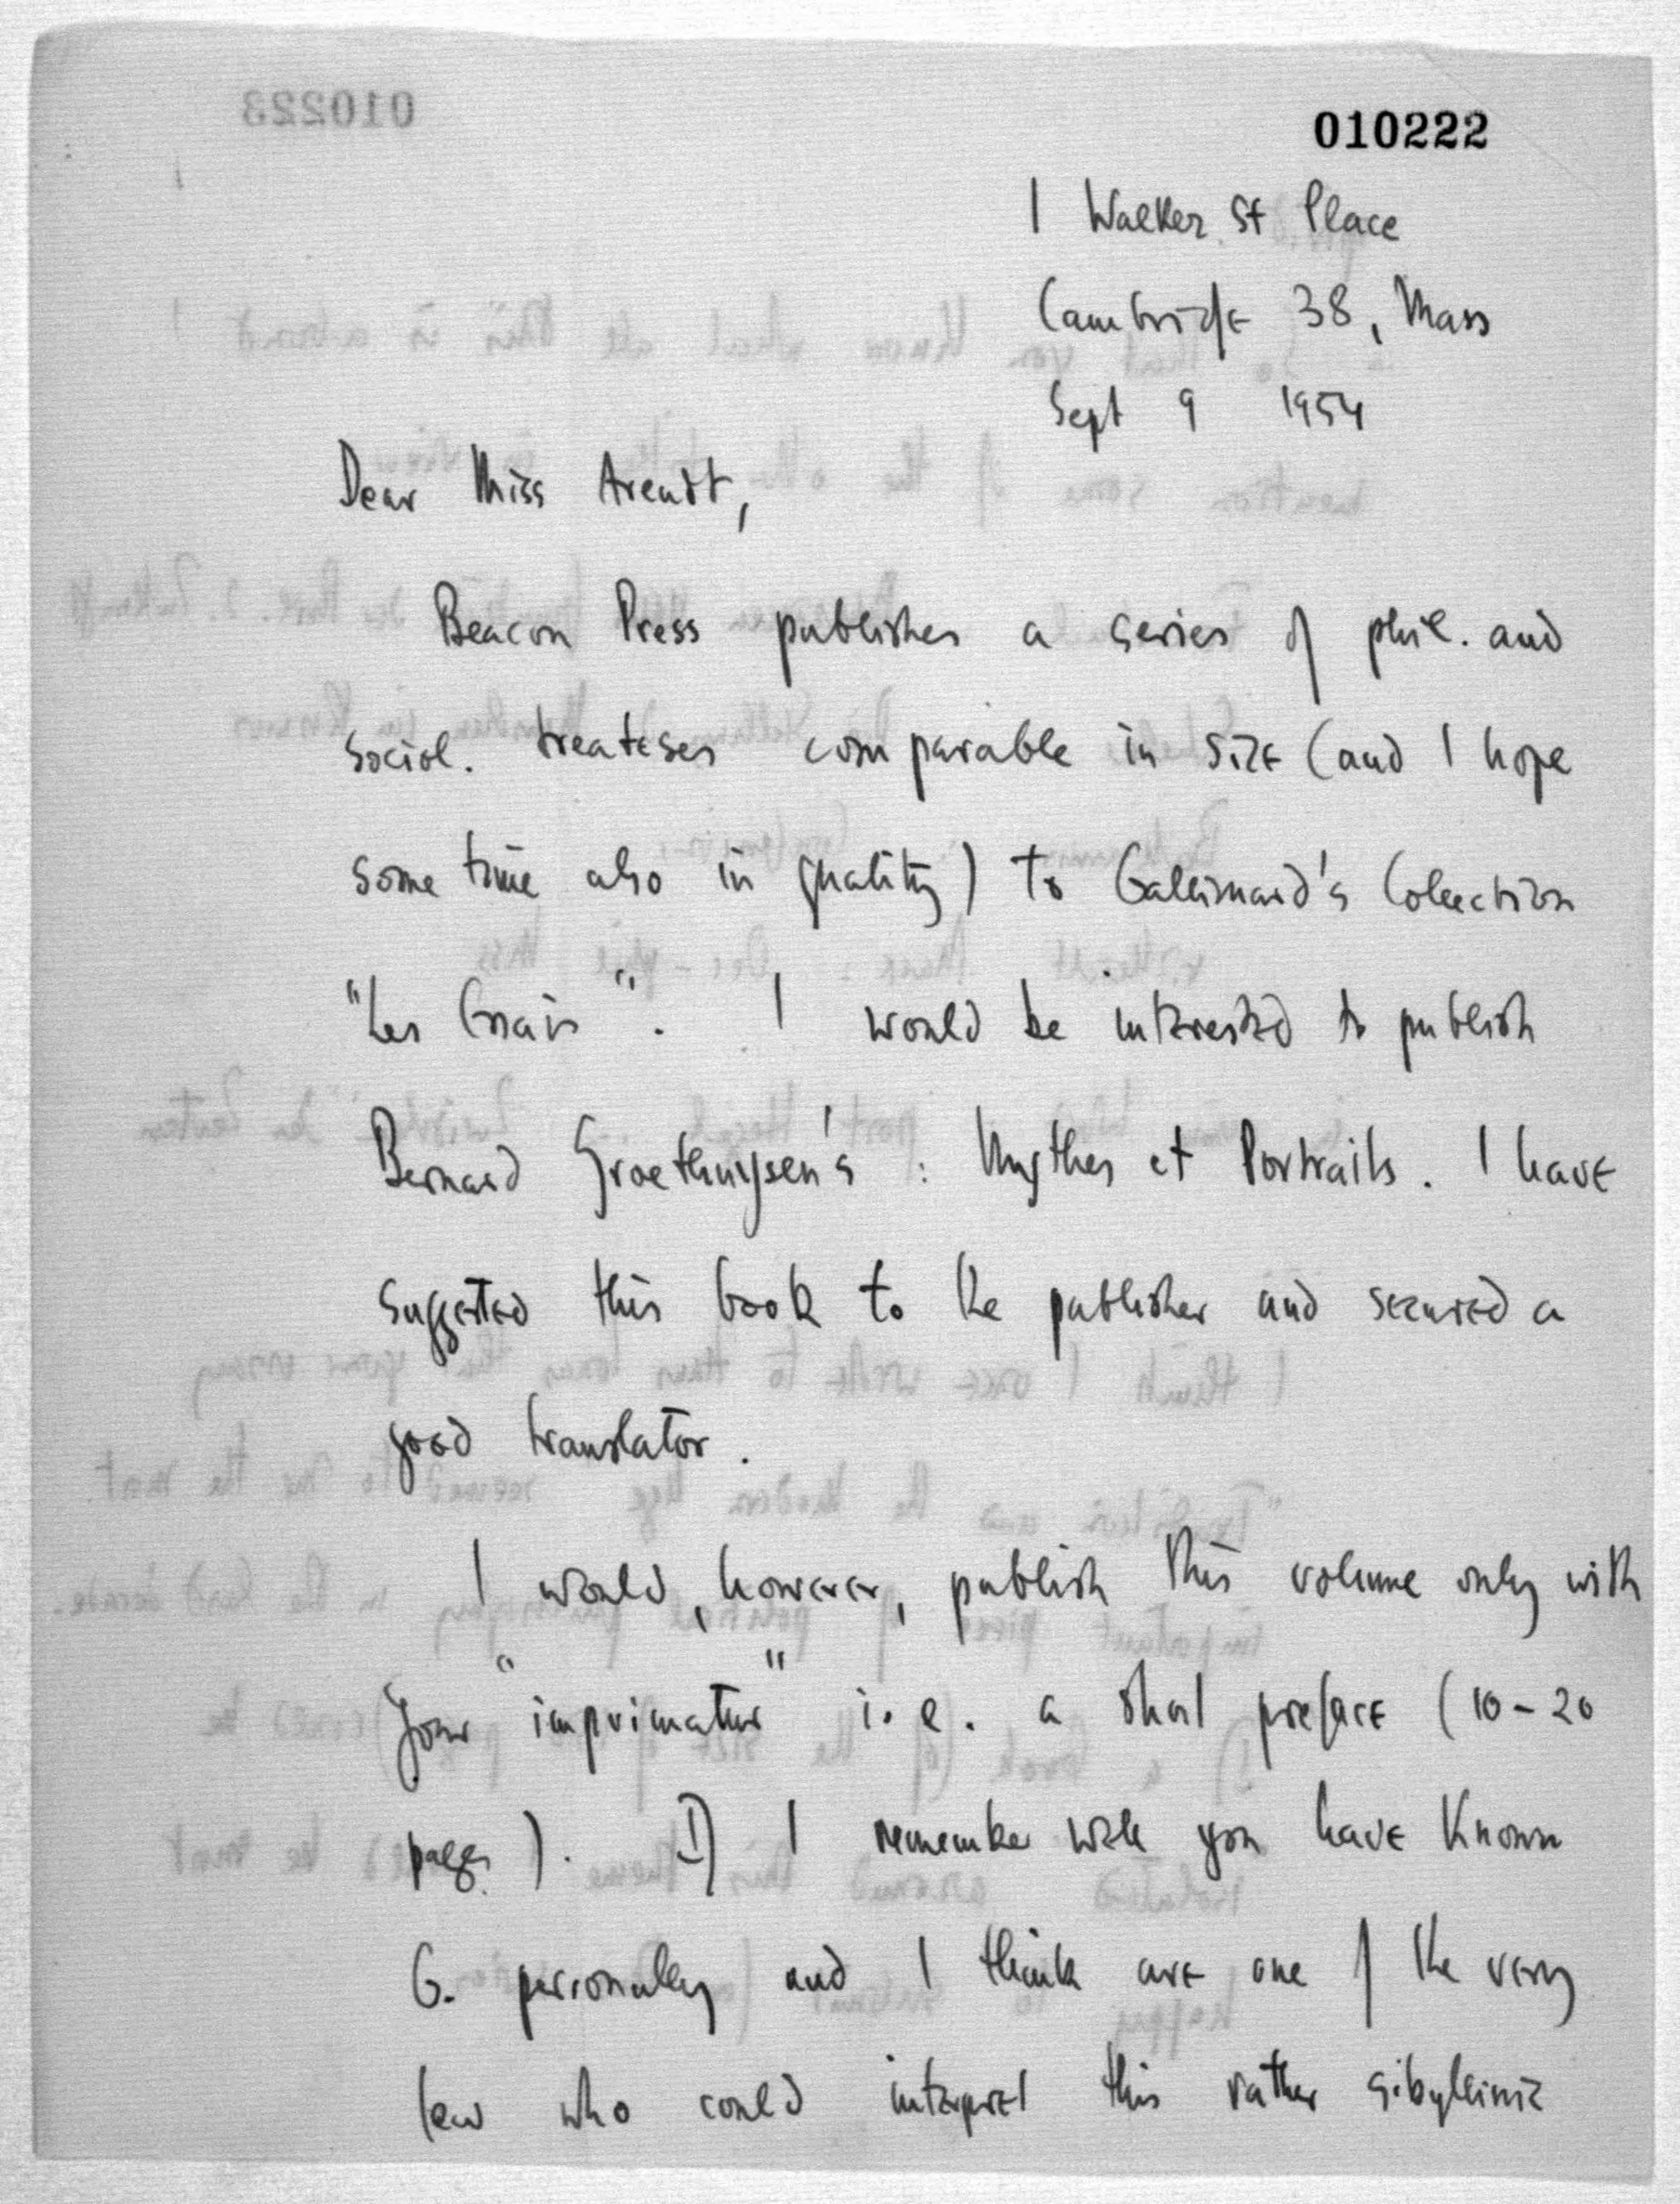 010223
010222
1 Walker St Place
Cambridge 38, Mass
Sept 9 1954
Dear Miss Arendt,
Beacon Press publishes a series of phil. and
sociol. treateses comparable in size (and I hope
some time also in quality) to Gallimard's Collection
"Les Essais". I would be interested to publish
Bernard Groethuysen's: Mythes et Portraits. I have
suggested this book to the publisher and secured a
good translator.
I would, however, publish this volume only with
your "imprimatur" i.e. a short preface (10-20
pages). 1) I remember well you have known
G. personally and I think are one of the very
few who could interpret this rather sibyllinic